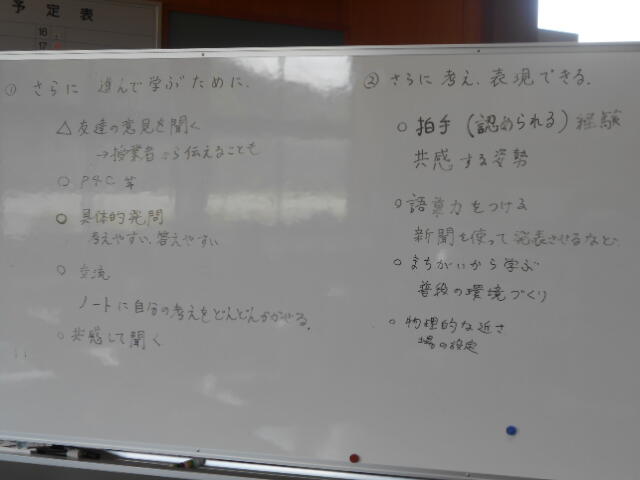 予定表
16
17
① さらに 進んで学ぶために.
△ 友達の意見を聞く
→授業者から伝えることも
○ P4C 等
○ 具体的発問
考えやすい、答えやすい
○ 交流
ノートに自分の考えをどんどんかかせる.
○ 共感して聞く
② さらに考え、表現できる.
○ 拍手 (認められる) 経験
共感する姿勢
○ 語彙力をつける
新聞を使って発表させるなど、
○ まちがいから学ぶ
普段の環境づくり
○ 物理的な近さ
場の設定